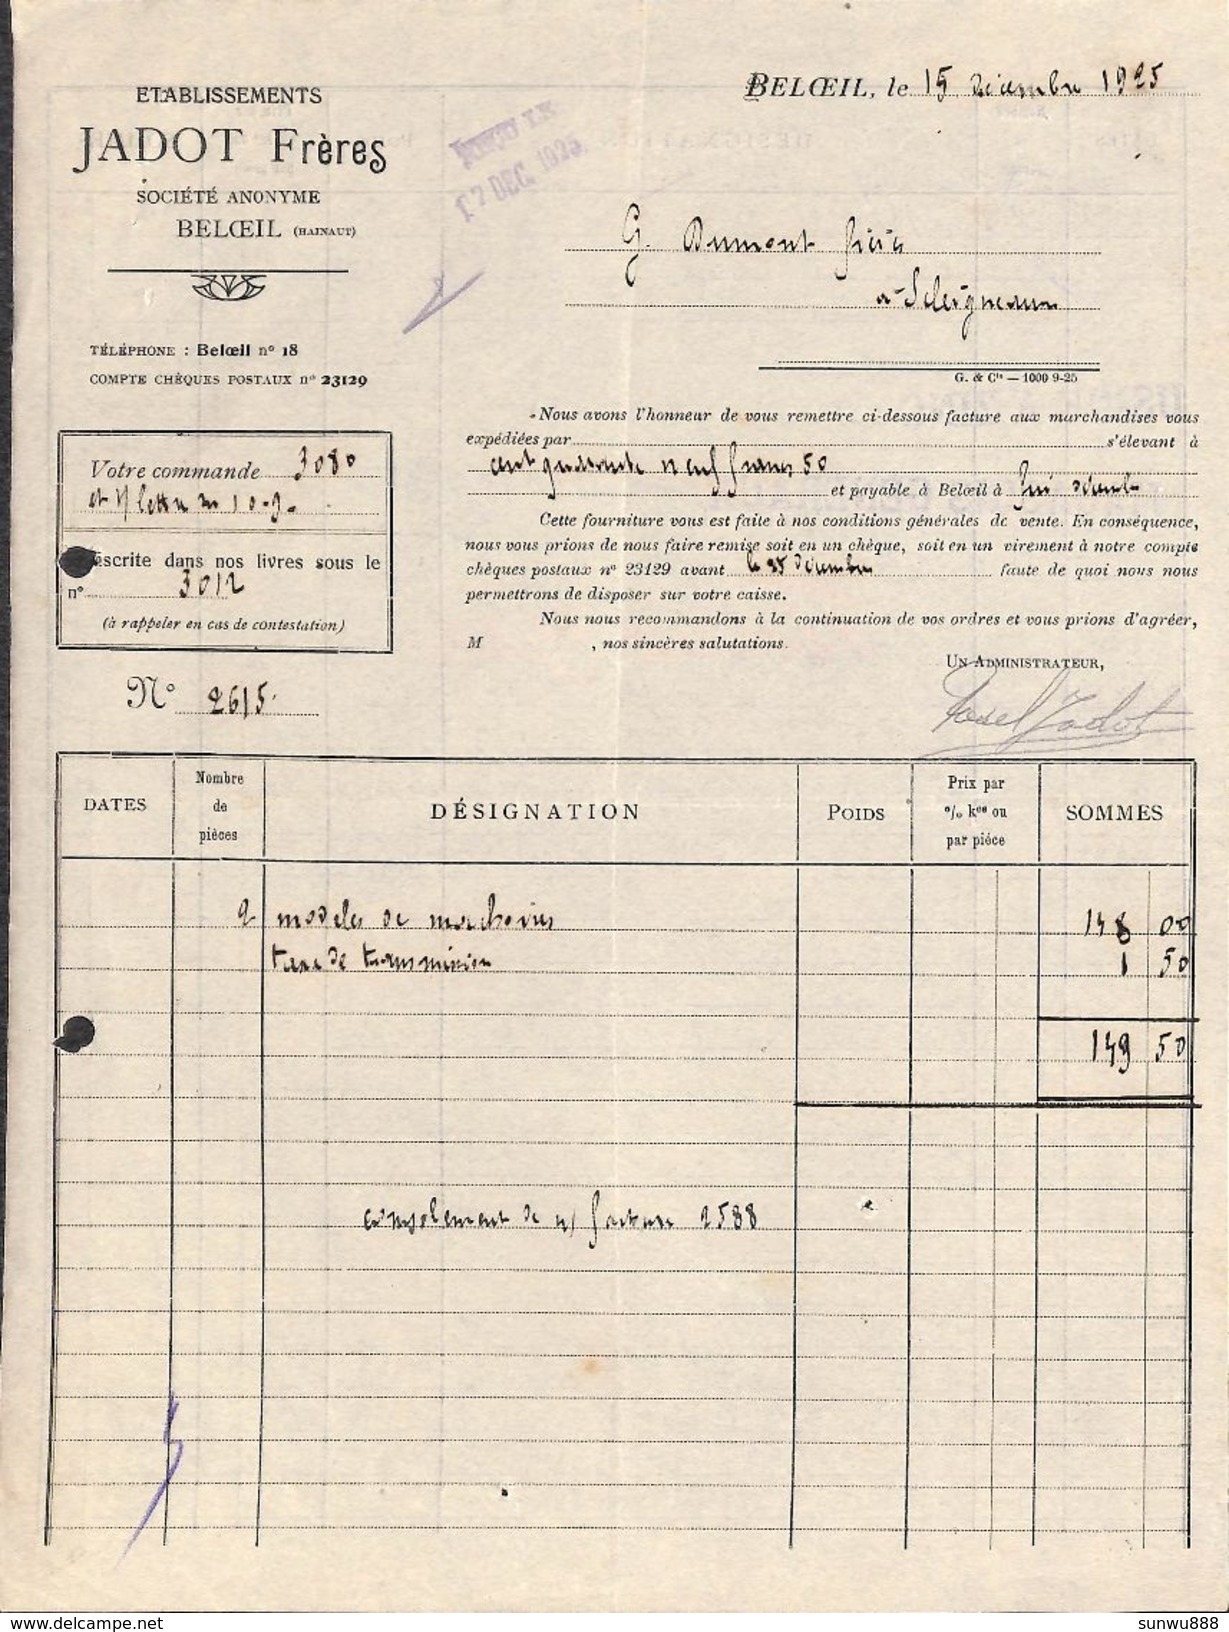 ETABLISSEMENTS
JADOT Frères
SOCIÉTÉ ANONYME
BELŒIL (HAINAUT)
TÉLÉPHONE : Belœil n° 18
COMPTE CHÈQUES POSTAUX n° 23129
BELŒIL, le 15 décembre 1925
REÇU LE
17 DEC. 1925
G. Dumont frères
à Sclaigneaux
G. & Cie — 1000 9-25
Votre commande 3080
et lettre 10-9-
Inscrite dans nos livres sous le
n° 3012
(à rappeler en cas de contestation)
N° 2615
Nous avons l'honneur de vous remettre ci-dessous facture aux marchandises vous
expédiées par s'élevant à
cent quarante neuf francs 50
et payable à Belœil à fin décemb
Cette fourniture vous est faite à nos conditions générales de vente. En conséquence,
nous vous prions de nous faire remise soit en un chèque, soit en un virement à notre compte
chèques postaux n° 23129 avant le 25 décembre faute de quoi nous nous
permettrons de disposer sur votre caisse.
Nous nous recommandons à la continuation de vos ordres et vous prions d'agréer,
M , nos sincères salutations.
UN ADMINISTRATEUR,
Jadot
DATES Nombre de pièces DÉSIGNATION POIDS Prix par % kos ou par pièce SOMMES
2 modèles de machoires 148 00
taxe de transmission 1 50
149 50
complement de n/ facture 2588
sunwu888